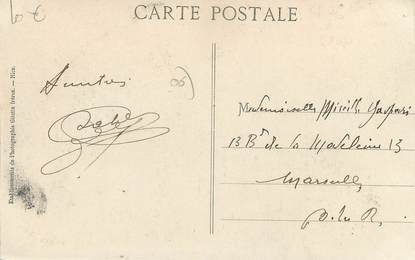 10 €
CARTE POSTALE
06
Mademoiselle Mireille Gaspari
13 Bd de la Madeleine 13
Marseille
B. du R.
Etablissements de Photographie Giletta frères. — Nice.